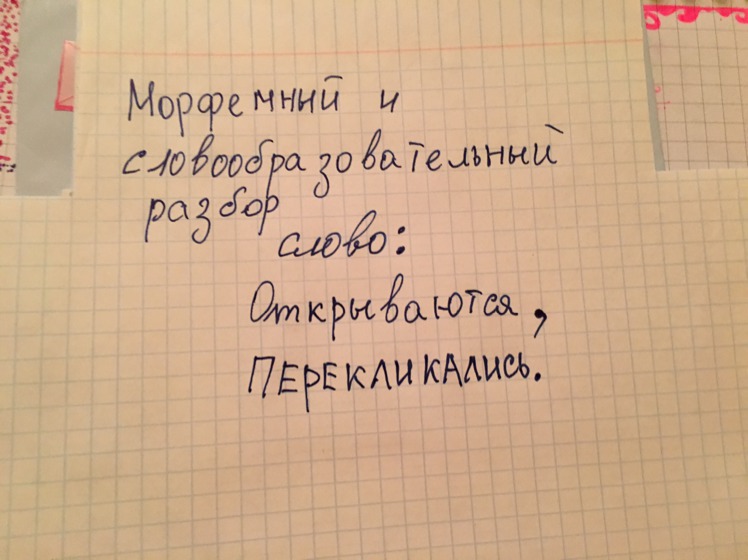 Морфемный и
словообразовательный
разбор
слово:
Открываются,
ПЕРЕКЛИКАЛИСЬ.